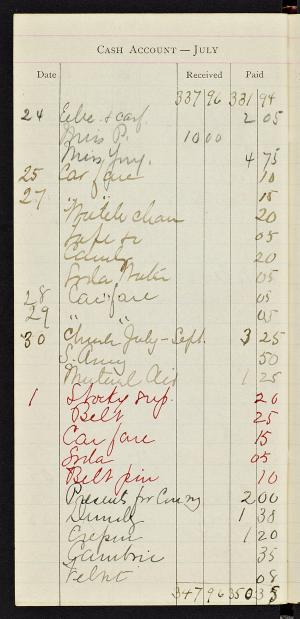 CASH ACCOUNT — JULY
Date Received Paid
337 96 331 94
24 & 2 05
Miss P. 10 00
Miss 4 75
25 Car fare 10
27 " " 15
20
05
Candy 20
Soda Water 05
28 Car fare 05
29 " " 05
30 Church July - Sept. 3 25
S. Army 50
Mutual Aid 1 25
1 sup. 20
Belt 25
Car fare 15
Soda 05
Belt pin 10
Presents for 2 00
1 38
1 20
Cambric 35
08
347 96 350 35